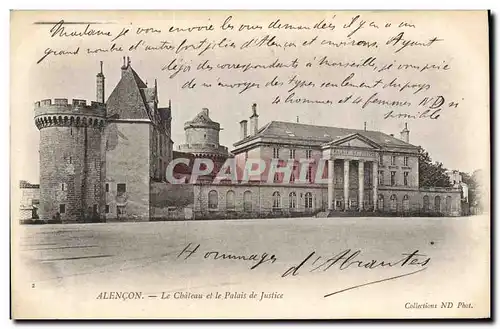 Madame je vous envoie les vues demandées il y a un
grand nombre et d'autres fort jolies d'Alençon et environs. Ayant
déjà des correspondants à Marseille, je vous prie
de m'envoyer des types seulement du pays
4 hommes et 4 femmes ND si
possible
CARTHAPOLE.COM
Hommage d'Abrantes
ALENÇON. — Le Château et le Palais de Justice
Collections ND Phot.